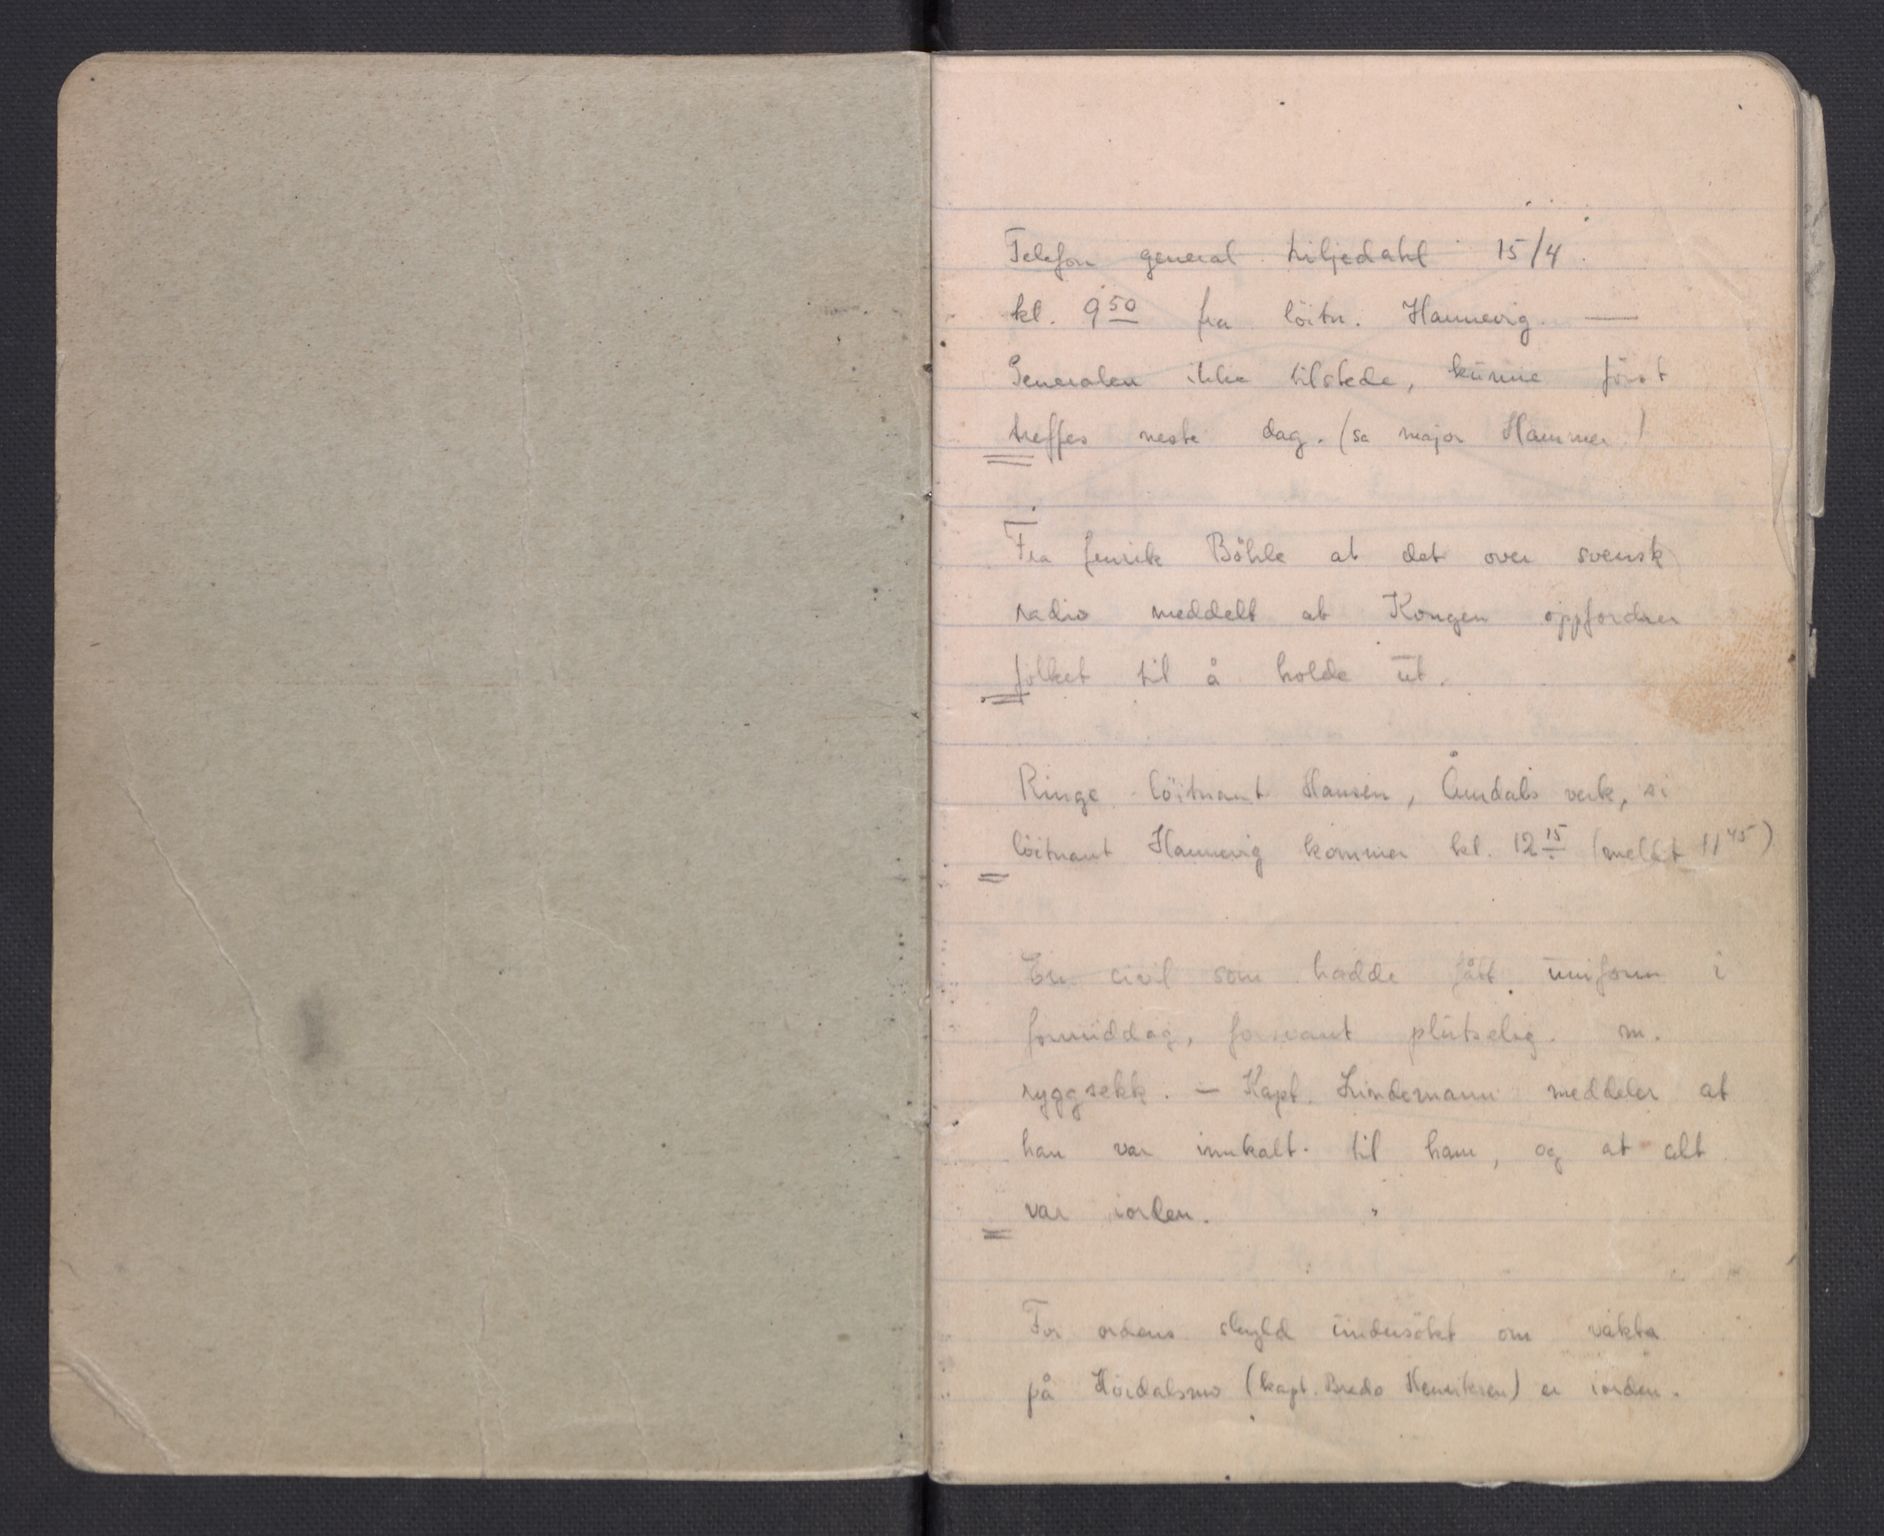 Telefon general Liljedahl 15/4.
kl. 9 50 fra löitn. Hannevig. —
Generalen ikke tilstede, kunne först
treffes neste dag. (sa major Hammer)
Fra fenrik Böhle at det over svensk
radio meddelt at Kongen oppfordrer
folket til å holde ut.
Ringe löitnant Hansen, Åmdals verk, si
löitnant Hannevig kommer kl. 12 15 (meldt 11 45)
En civil som hadde fått uniform i
formiddag, forsvant plutselig m.
ryggsekk. — Kapt. Lindemann meddeler at
han var innkalt til ham, og at alt
var iorden.
For ordens skyld undersökt om vakta
på (kapt. Bredo Henriksen) er iorden.